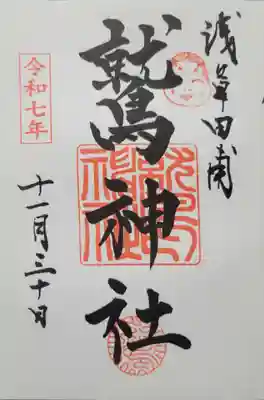 浅草田甫
鷲神社
令和七年
十一月三十日